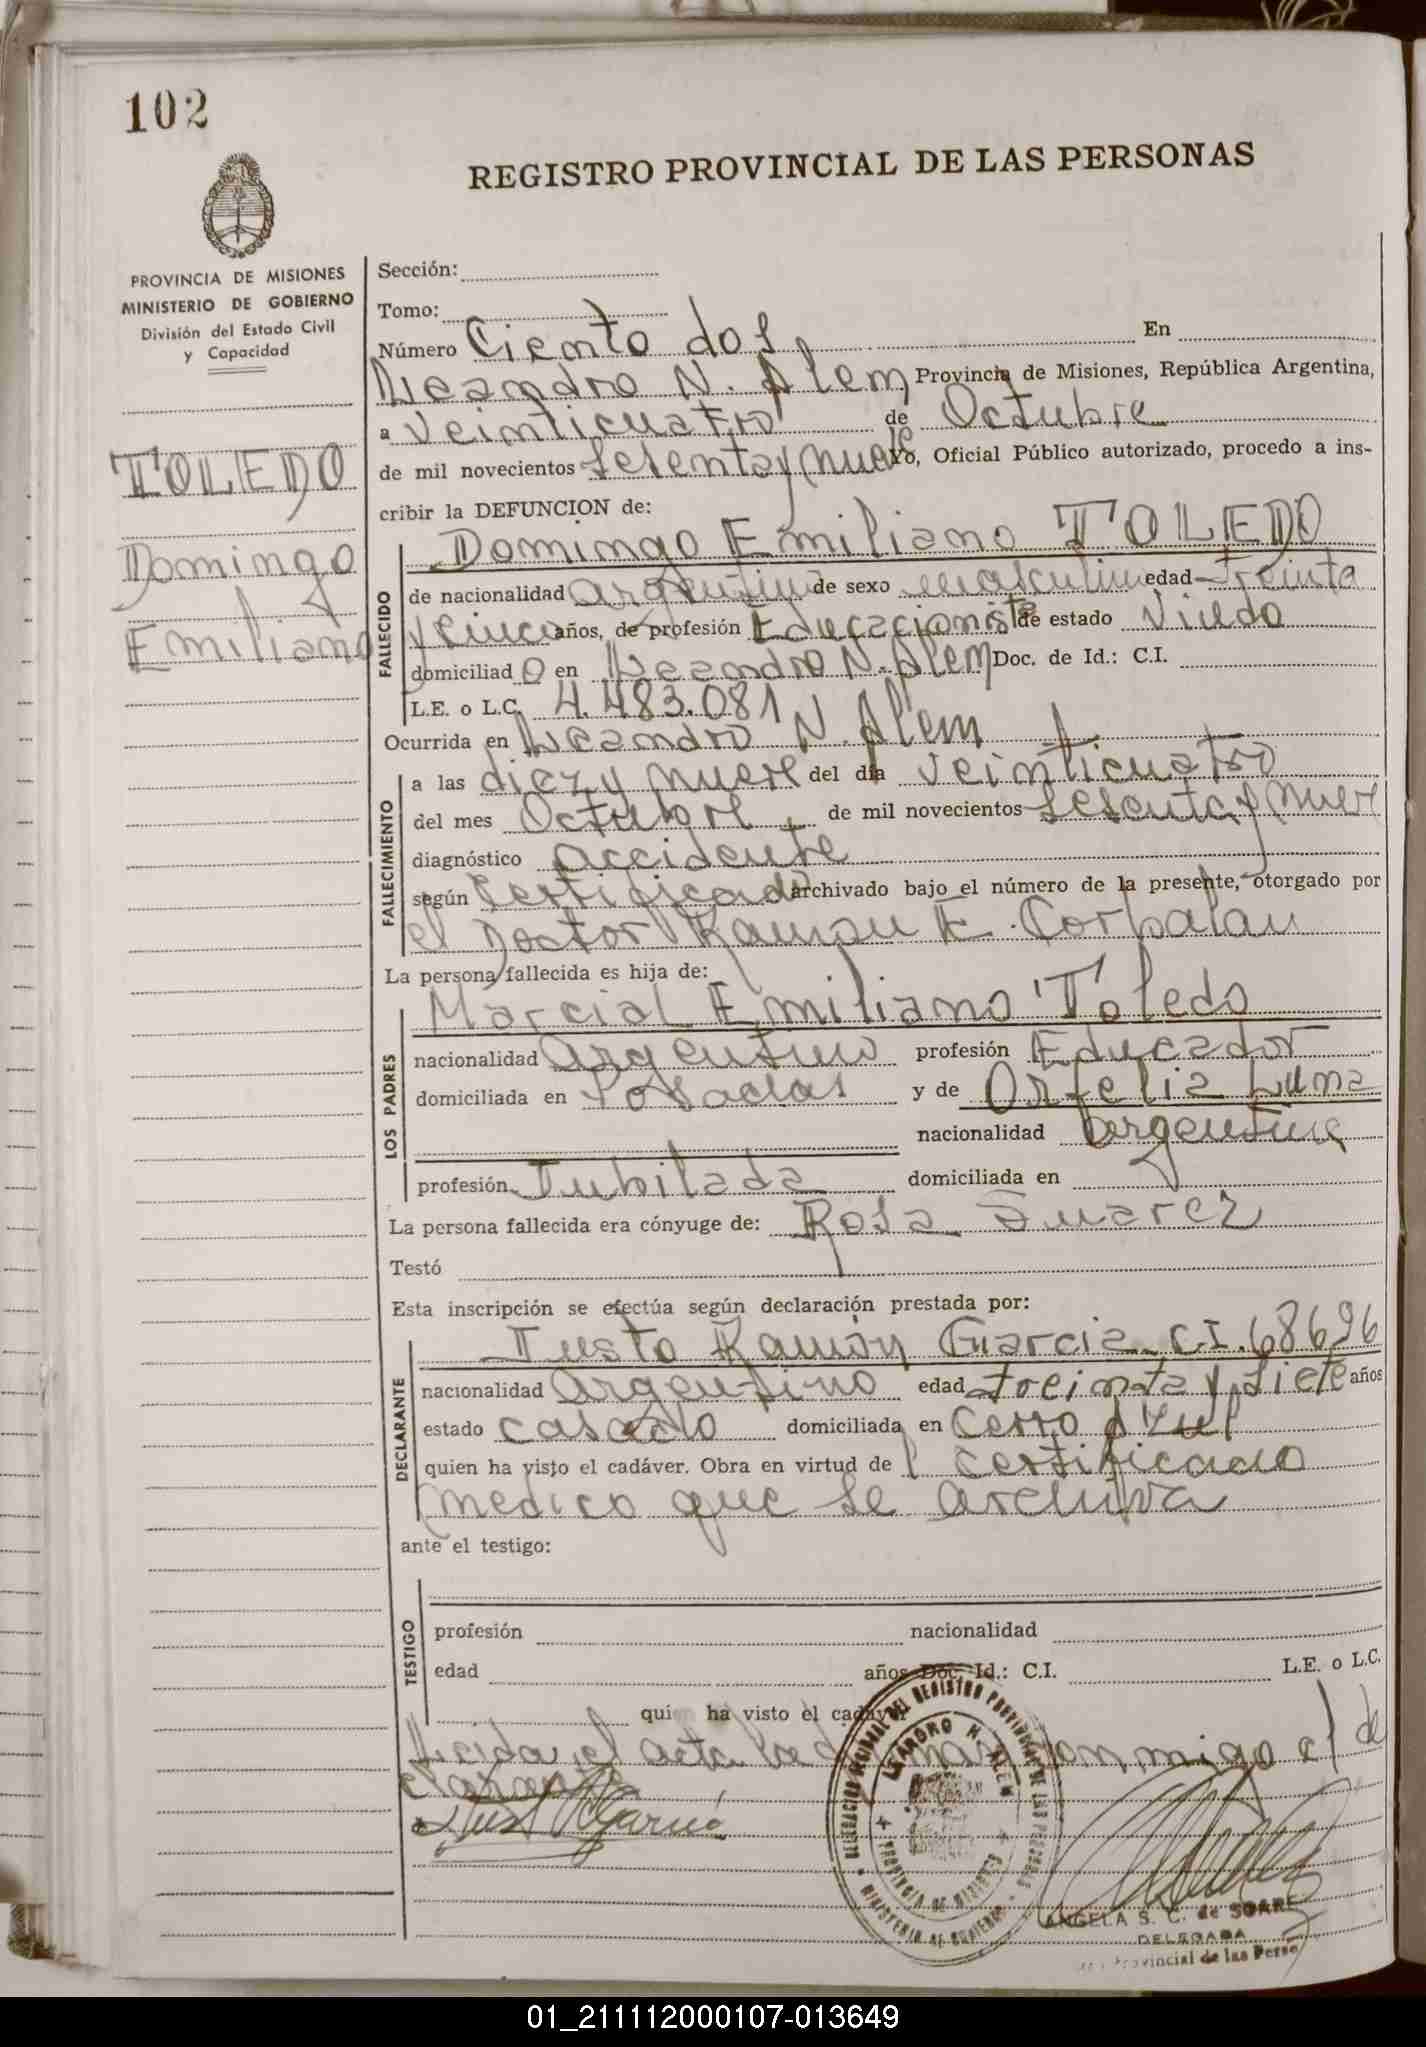 102
REGISTRO PROVINCIAL DE LAS PERSONAS
PROVINCIA DE MISIONES
MINISTERIO DE GOBIERNO
División del Estado Civil
y Capacidad
TOLEDO
Domingo
Emiliano
Sección:
Tomo:
Número Ciento dos, En
Leandro N. Alem Provincia de Misiones, República Argentina,
a Veinticuatro de Octubre
de mil novecientos sesenta y nueve Yo, Oficial Público autorizado, procedo a ins-
cribir la DEFUNCION de:
FALLECIDO
Domingo Emiliano TOLEDO
de nacionalidad argentino de sexo masculino edad treinta
y cinco años, de profesión Educacionista de estado Viudo
domiciliado en Leandro N. Alem Doc. de Id.: C.I.
L.E. o L.C. 4.483.081
Ocurrida en Leandro N. Alem
FALLECIMIENTO
a las diez y nueve del día veinticuatro
del mes Octubre de mil novecientos sesenta y nueve
diagnóstico accidente
según certificado archivado bajo el número de la presente, otorgado por
el Doctor Ramon E. Corbalan
La persona fallecida es hija de:
LOS PADRES
Marcial Emiliano Toledo
nacionalidad argentino profesión Educador
domiciliada en Posadas y de Orfelia Luna
nacionalidad argentina
profesión Jubilada domiciliada en
La persona fallecida era cónyuge de: Rosa Suarez
Testó
Esta inscripción se efectúa según declaración prestada por:
DECLARANTE
Justo Ramón Garcia C.I. 68696
nacionalidad argentino edad treinta y siete años
estado casado domiciliada en Cerro Azul
quien ha visto el cadáver. Obra en virtud del certificado
medico que se archiva
ante el testigo:
TESTIGO
profesión nacionalidad
edad años Doc. Id.: C.I. L.E. o L.C.
quien ha visto el cadáver
Leida el acta la conmigo el de
clarante
DELEGACION REGIONAL DEL REGISTRO PROVINCIAL DE LAS PERSONAS
LEANDRO N. ALEM
PROVINCIA DE MISIONES
MINISTERIO DE GOBIERNO
ANGELA S. C. de SOARE
DELEGADA
Provincial de las Perso
01_211112000107-013649